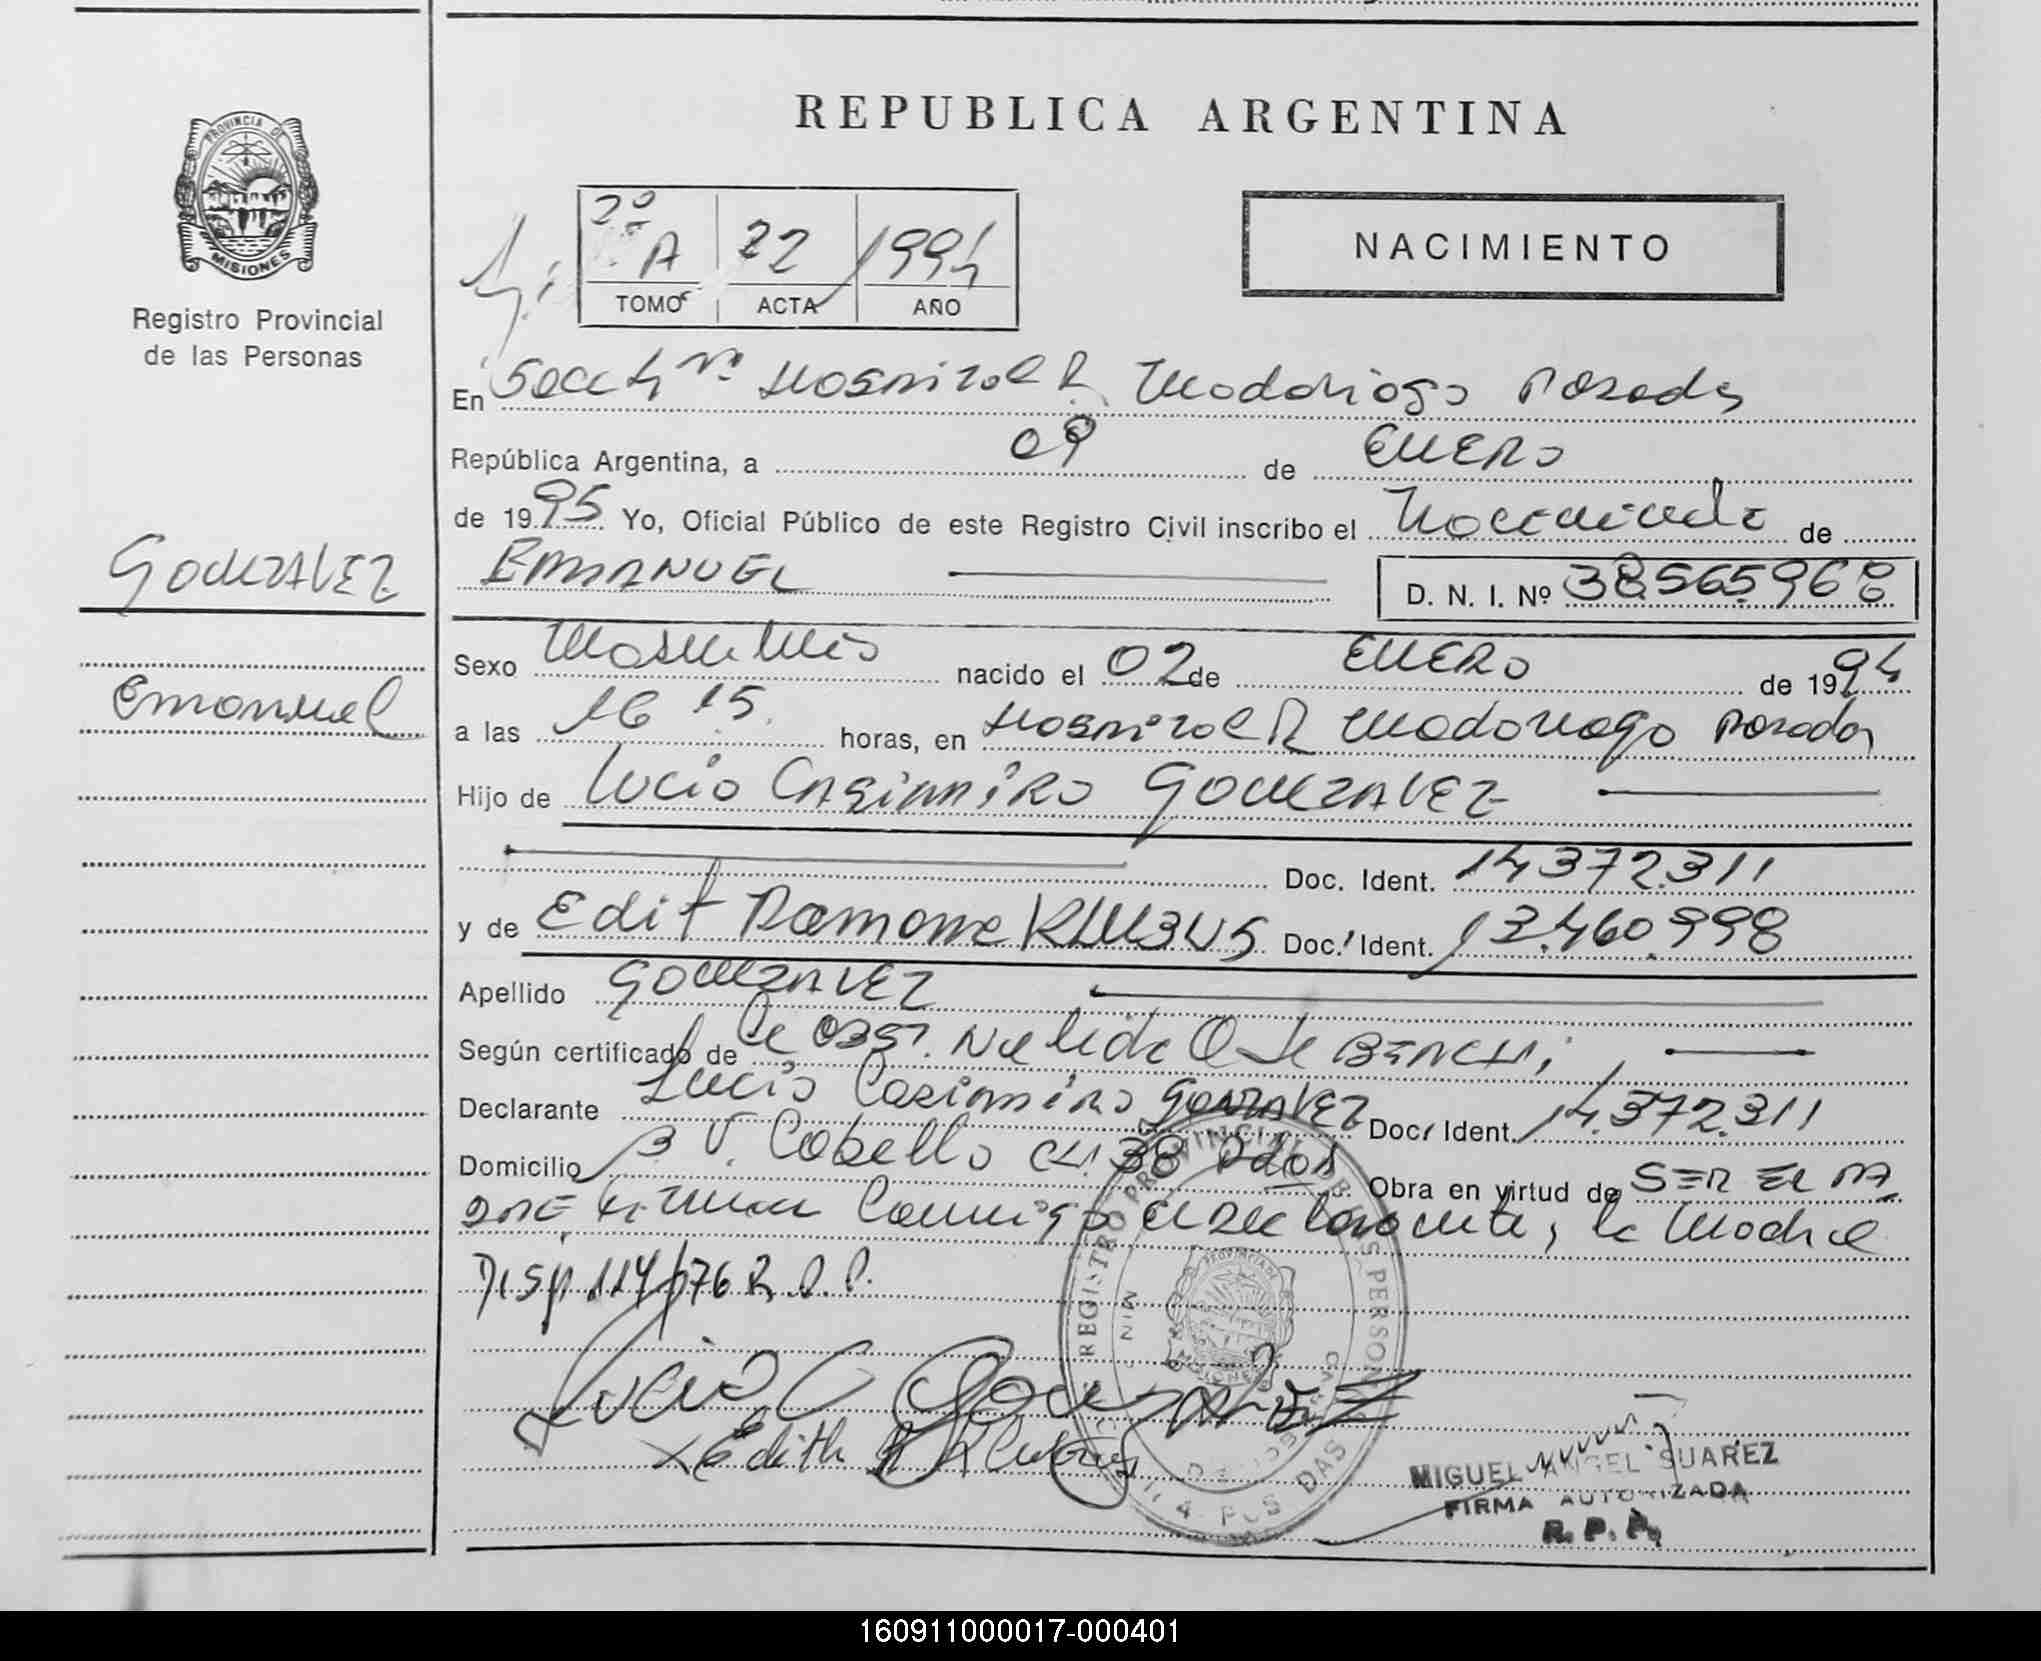 REPUBLICA ARGENTINA
PROVINCIA DE
MISIONES
Registro Provincial
de las Personas
2º
A 22 1994
TOMO ACTA AÑO
NACIMIENTO
En Secc 4 Nª Hospital R. Madariaga Posadas
República Argentina, a 09 de ENERO
de 1995 Yo, Oficial Público de este Registro Civil inscribo el Nacimiento de
GONZALEZ
EMMANUEL D. N. I. Nº 38.565.968
Sexo Masculino nacido el 02 de ENERO de 1994
Emanuel
a las 16 15. horas, en Hospital R Madariaga Posadas
Hijo de Lucio CASIMIRO GONZALEZ
Doc. Ident. 14.372.311
y de Edit Ramona KLUBUS Doc. Ident. 13.460.998
Apellido GONZALEZ
Según certificado de la Obst. Nelida O de BIANCHI
Declarante Lucio Casimiro GONZALEZ Doc. Ident. 14.372.311
Domicilio B V. Cabello CH. 38 Pdas Obra en virtud de SER EL PA
DRE firman conmigo el declarante, la Madre
Disp 114/76 R.P.P.
REGISTRO PROVINCIAL DE LAS PERSONAS
Lucio C Gonzalez
x Edith R Klubus
MIGUEL ANGEL SUAREZ
FIRMA AUTORIZADA
R. P. P.
160911000017-000401